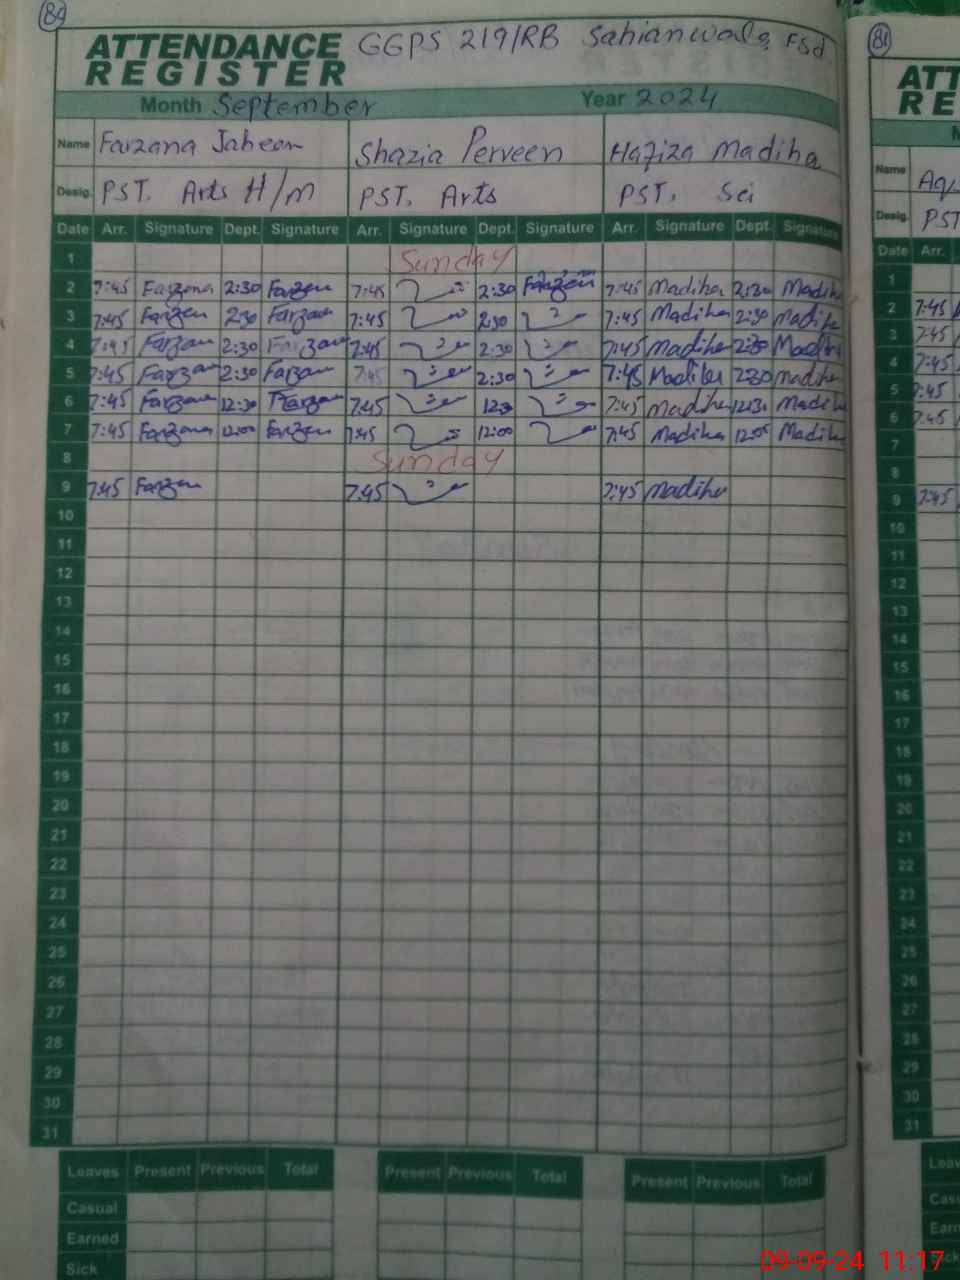 84
ATTENDANCE REGISTER GGPS 219/RB Sahianwala, Fsd.
Month September Year 2024
Name Farzana Jabeen Shazia Perveen Hafiza Madiha
Desig. PST. Arts H/M PST. Arts PST. Sci
Date Arr. Signature Dept. Signature Arr. Signature Dept. Signature Arr. Signature Dept. Signature
1 Sunday
2 7:45 Farzana 2:30 Farzan 7:45 2:30 Farzan 7:45 Madiha 2:30 Madiha
3 7:45 Farzan 2:30 Farzan 7:45 2:30 7:45 Madiha 2:30 Madiha
4 7:45 Farzan 2:30 Farzan 7:45 2:30 7:45 Madiha 2:30 Madiha
5 7:45 Farzan 2:30 Farzan 7:45 2:30 7:45 Madiha 2:30 Madiha
6 7:45 Farzan 12:30 Farzan 7:45 12:30 7:45 Madiha 12:30 Madiha
7 7:45 Farzana 12:00 Farzan 7:45 12:00 7:45 Madiha 12:00 Madiha
8 Sunday
9 7:45 Farzan 7:45 7:45 Madiha
10
11
12
13
14
15
16
17
18
19
20
21
22
23
24
25
26
27
28
29
30
31
Leaves Present Previous Total Present Previous Total Present Previous Total
Casual
Earned
Sick
81
ATT
RE
Name Aq
Desig. PST
Date Arr.
1
2 7:45
3 7:45
4 7:45
5 7:45
6 7:45
7
8
9 7:45
10
11
12
13
14
15
16
17
18
19
20
21
22
23
24
25
26
27
28
29
30
31
Leav
Casu
Earn
Sick
09-09-24 11:17